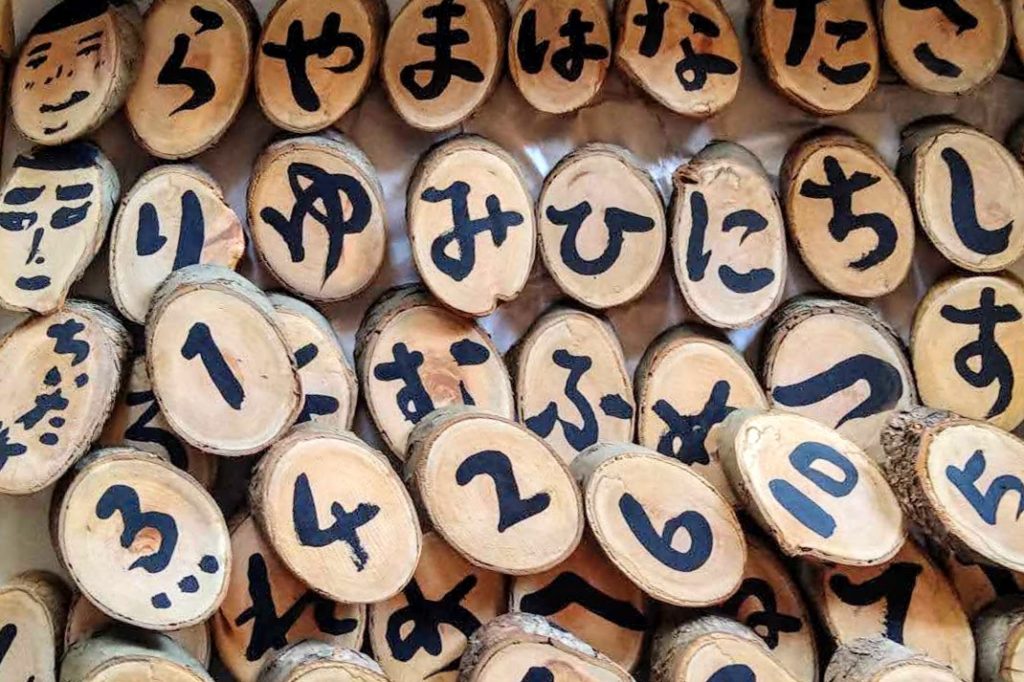 らやまはなた
りゆみひにちし
1むふぬつす
3426105
れめへて